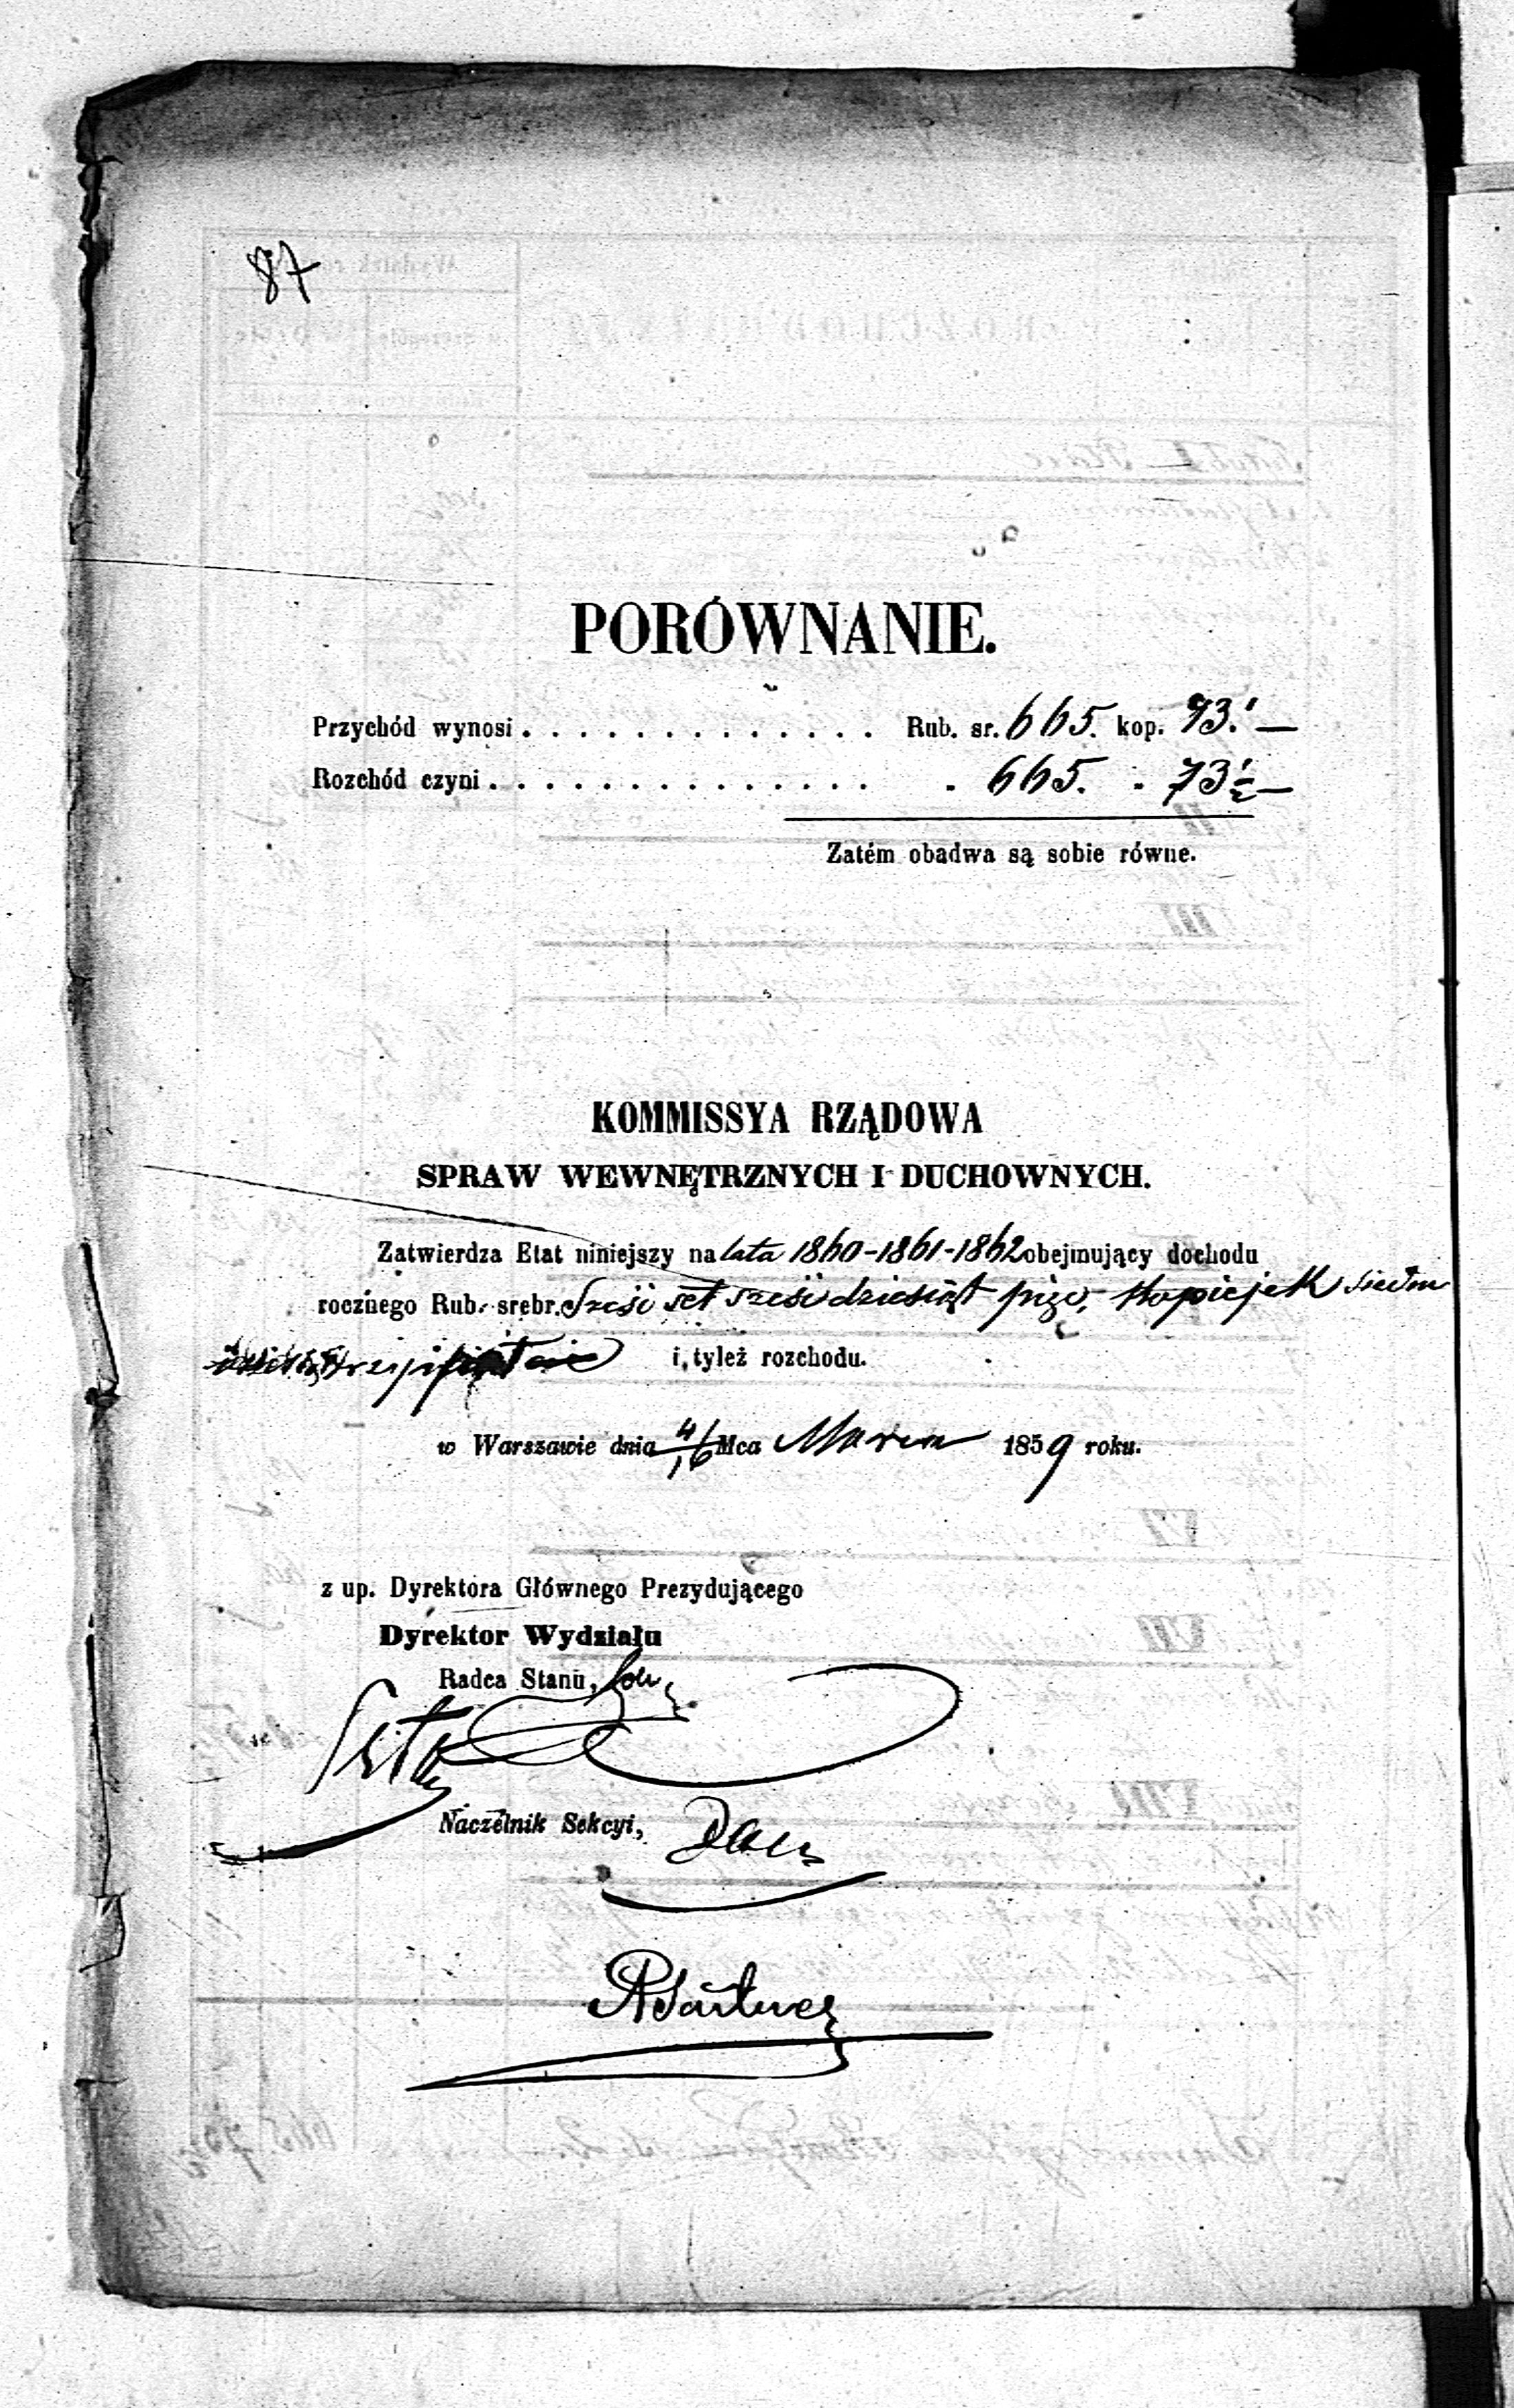 87
PORÓWNANIE.
Przychód wynosi . . . . . . . . . . . . . Rub. sr. 665. kop. 73.
Rozchód czyni . . . . . . . . . . . . . . . 665. . 73 1/2 —
Zatém obadwa są sobie równe.
KOMMISSYA RZĄDOWA
SPRAW WEWNĘTRZNYCH I DUCHOWNYCH.
Zatwierdza Etat niniejszy na lata 1860-1861-1862 obejmujący dochodu
rocznego Rub. srebr. Sześć set sześćdziesiąt pięć, kopiejek siedm
i tyleż rozchodu.
w Warszawie dnia 4/16 Mca Marca 1859 roku.
z up. Dyrektora Głównego Prezydującego
Dyrektor Wydziału
Radca Stanu,
Naczelnik Sekcyi,